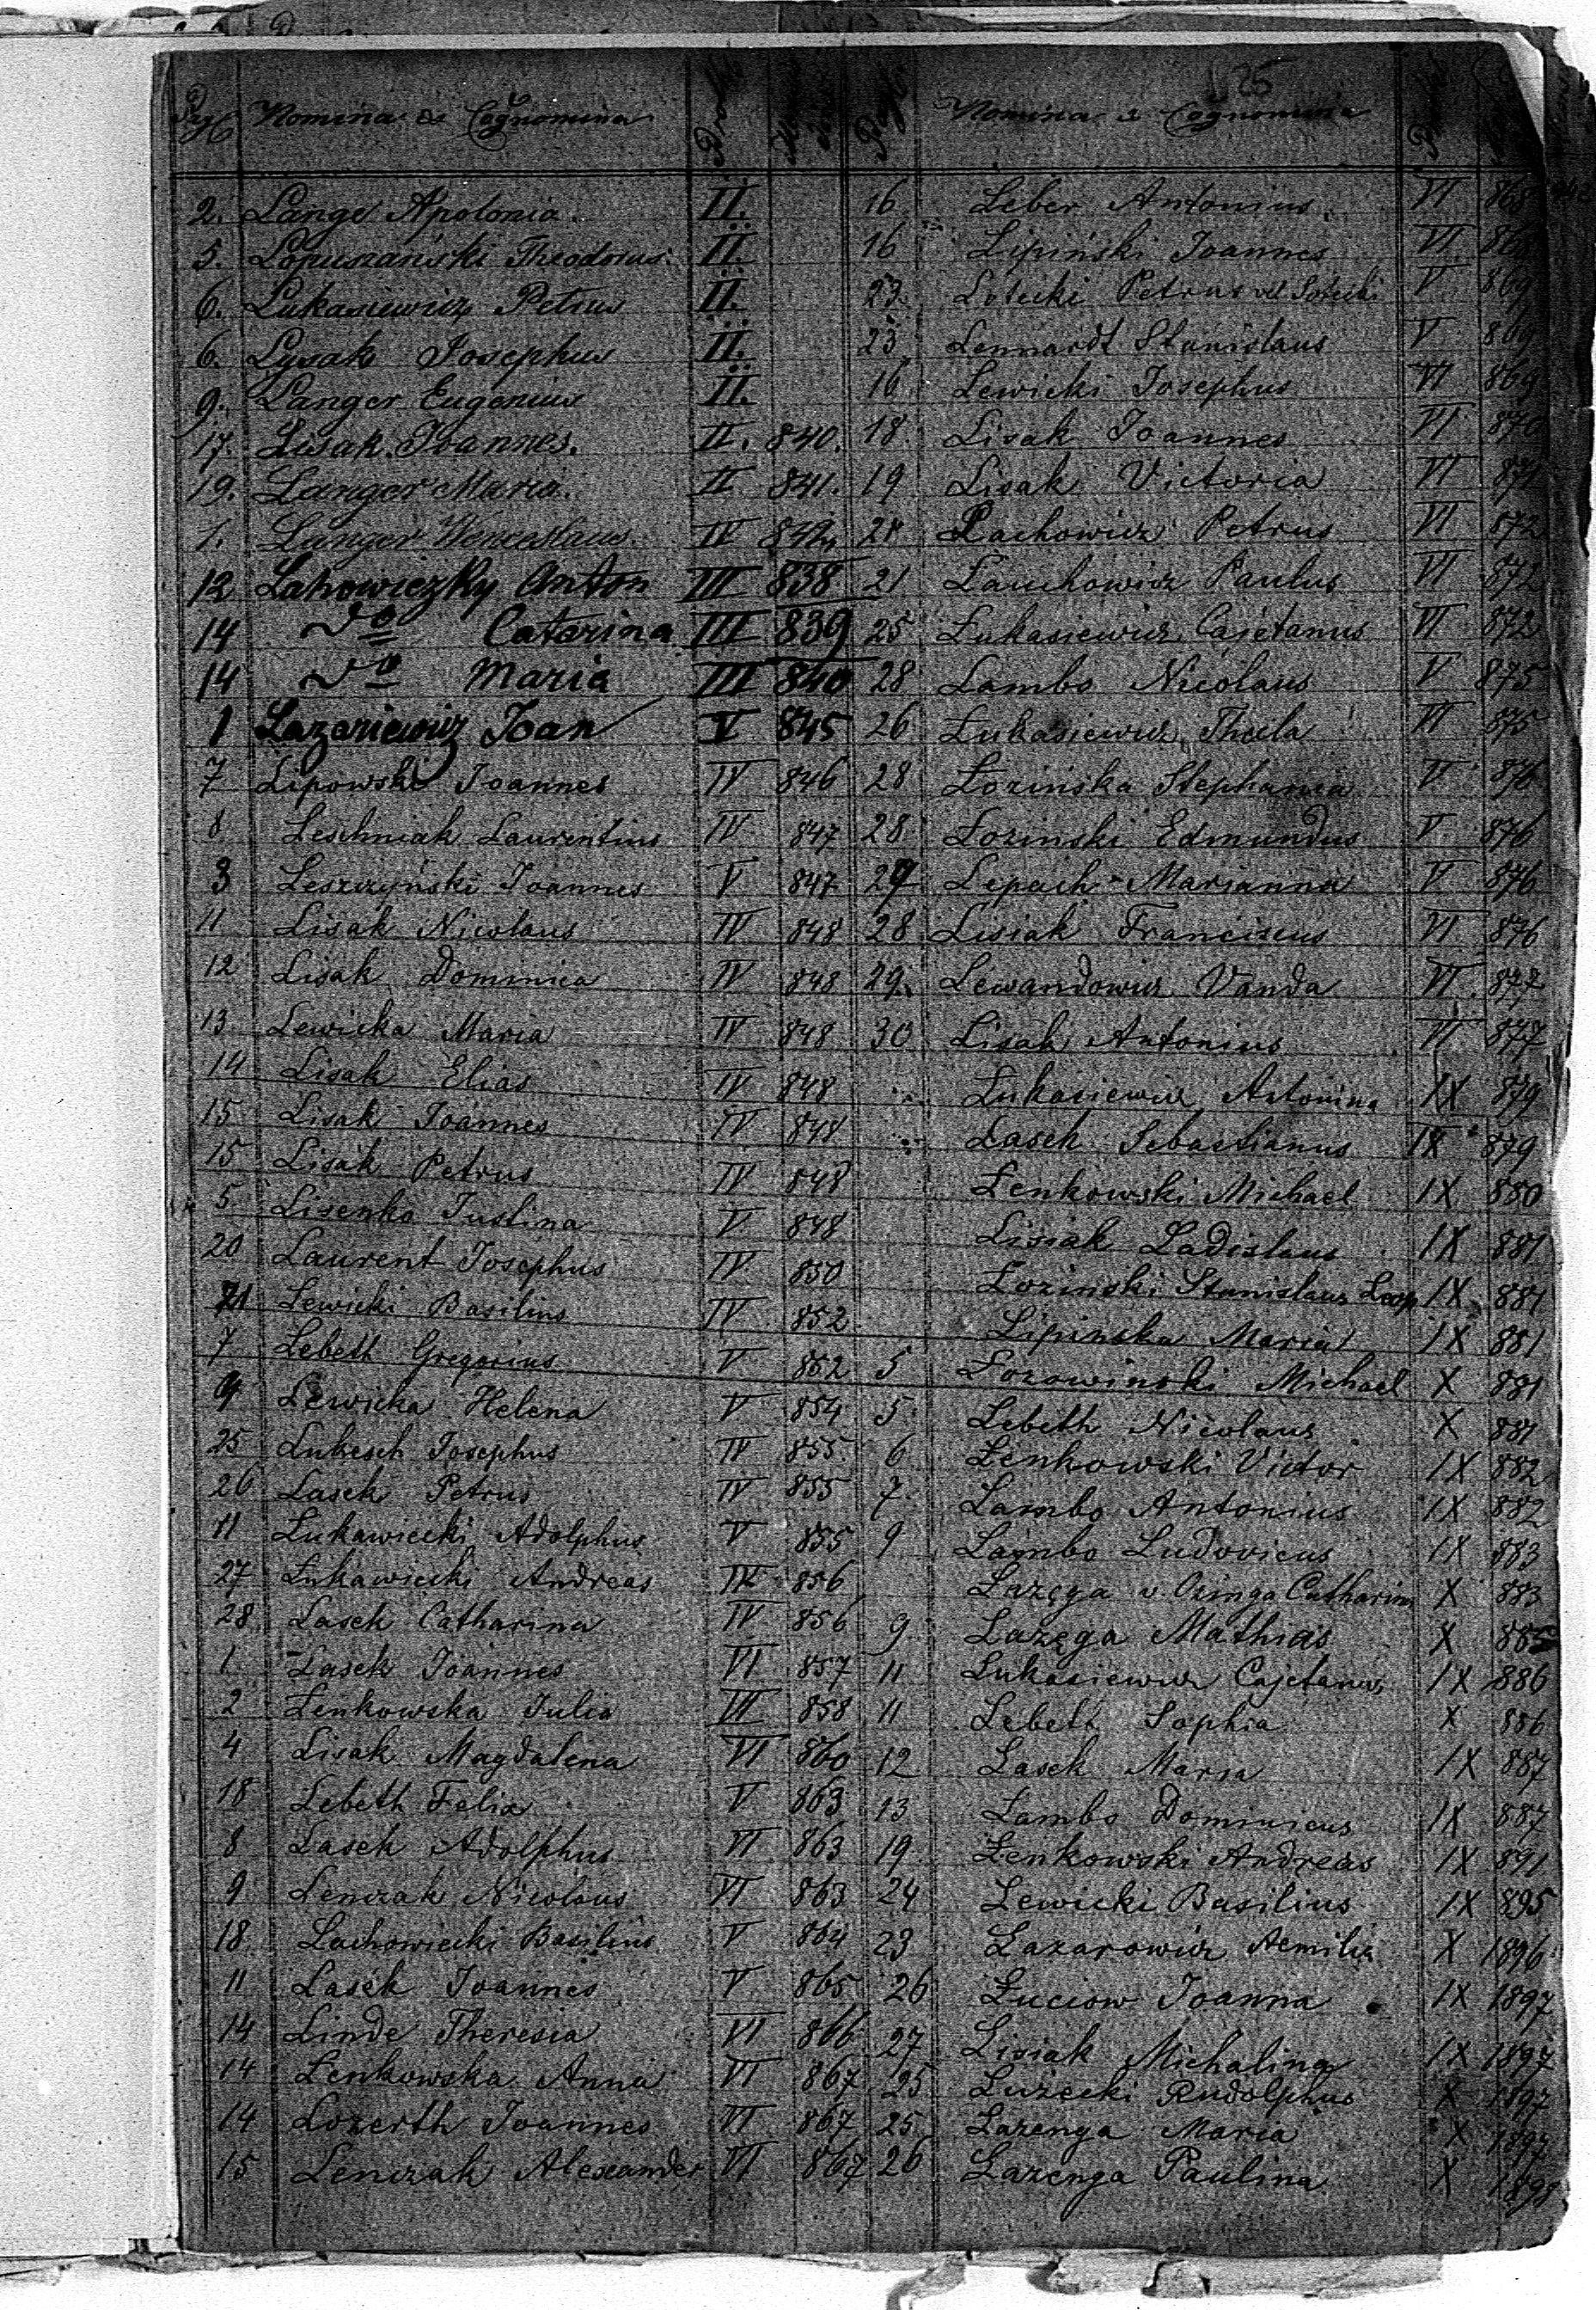 25
Pag. Nomina & Cognomina
2. Lange Apolonia. II.
5. Łopuszański Theodorus II.
6. Łukasiewicz Petrus II.
6. Lysak Josephus II.
9. Langer Eugenius II.
17. Lisak Joannes. II. 840.
19. Langer Maria. II 841.
1. Langer Wenceslaus. IV 842
12 Lahowiczky Anton III 838
14 do Catarina III 839
14 do Maria III 840
1 Lazariewicz Joan V 845
7 Lipowski Joannes IV 846
8 Leschniak Laurentius IV 847
3 Leszczyński Joannes V 847
11 Lisak Nicolaus IV 848
12 Lisak Dominica IV 848
13 Lewicka Maria IV 848
14 Lisak Elias IV 848
15 Lisak Joannes IV 848
15 Lisak Petrus IV 848
5 Lisenko Justina V 848
20 Laurent Josephus IV 850
21 Lewicki Basilius IV 852
7 Lebeth Gregorius V 852
9 Lewicka Helena V 854
25 Lukesch Josephus IV 855
26 Lasek Petrus IV 855
11 Łukawiecki Adolphus V 855
27 Łukawiecki Andreas IV 856
28 Lasek Catharina IV 856
1 Lasek Joannes VI 857
2 Łenkowska Julia VI 858
4 Lisak Magdalena VI 860
18 Lebeth Felix V 863
8 Lasek Adolphus VI 863
9 Lenczak Nicolaus VI 863
18 Lachowiecki Basilius V 864
11 Lasek Joannes V 865
14 Linde Theresia VI 866
14 Łenkowska Anna VI 867
14 Lozerth Joannes VI 867
15 Lenczak Alexander VI 867
Nomina & Cognomina
16 Leber Antonius VI 868
16 Lipiński Joannes VI 868
23 Petrus vel V 869
23 Lennardt Stanislaus V 869
16 Lewicki Josephus VI 869
18 Lisak Joannes VI 870
19 Lisak Victoria VI 871
21 Lachowicz Petrus VI 872
21 Lauchowicz Paulus VI 872
25 Łukasiewicz Cajetanus VI 872
28 Lambo Nicolaus V 875
26 Łukasiewicz Thecla VI 875
28 Łozińska Stephania V 876
28 Łozinski Edmundus V 876
29 Lepach Marianna V 876
28 Lisiak Franciscus VI 876
29 Lewandowicz Vanda VI 877
30 Lisak Antonius VI 877
Łukasiewicz Antonina IX 879
Lasek Sebastianus IX 879
Łenkowski Michael IX 880
Lisiak Ladislaus IX 881
Łozinski Stanislaus Leop IX 881
Lipinska Maria IX 881
5 Łozowinski Michael X 881
5 Lebeth Nicolaus X 881
6 Łenkowski Victor IX 882
7 Lambo Antonius IX 882
9 Lambo Ludovicus IX 883
Łazęga v. Ozinga Catharina X 883
9 Łazęga Mathias X 885
11 Łukasiewicz Cajetanus IX 886
11 Lebeth Sophia X 886
12 Lasek Maria IX 887
13 Lambo Dominicus IX 887
19 Łenkowski Andreas IX 891
24 Lewicki Basilius IX 895
23 Łazarowicz Aemilia X 1896
26 Łuciow Joanna IX 1897
27 Lisiak Michalina IX 1897
25 Łużecki Rudolphus X 1897
25 Łazenga Maria X 1897
26 Łazenga Paulina X 1898